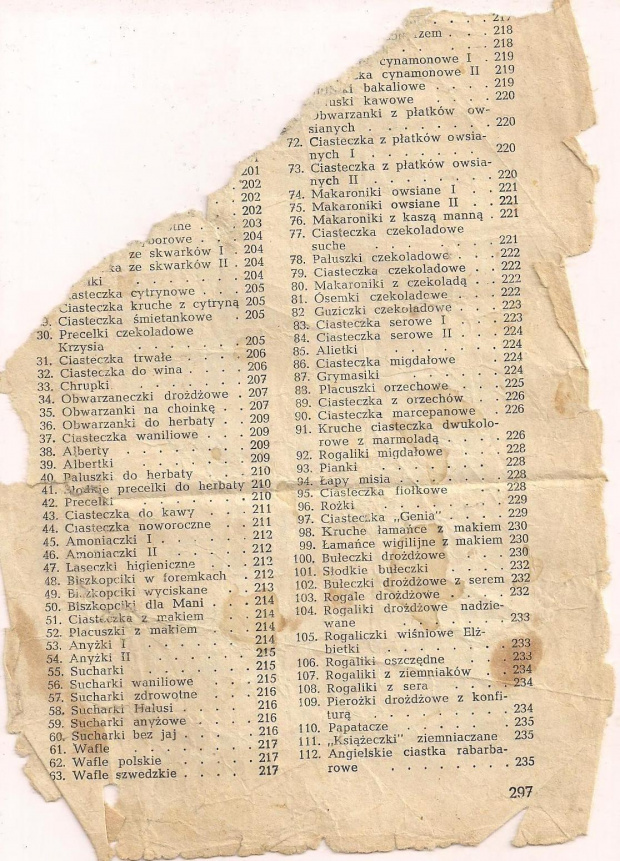 201
202
202
202
203
borowe . . 204
ze skwarków I . 204
ze skwarków II . 204
204
Ciasteczka cytrynowe . . 205
Ciasteczka kruche z cytryną 205
Ciasteczka śmietankowe . 205
30. Precelki czekoladowe
Krzysia . . . 205
31. Ciasteczka trwałe . . . 206
32. Ciasteczka do wina . . . 206
33. Chrupki . . . 207
34. Obwarzaneczki drożdżowe . 207
35. Obwarzanki na choinkę . 207
36. Obwarzanki do herbaty . 209
37. Ciasteczka waniliowe . . 209
38. Alberty . . . 209
39. Albertki . . . 209
40. Paluszki do herbaty . . 210
41. Słodkie precelki do herbaty 210
42. Precelki . . . 210
43. Ciasteczka do kawy . . 211
44. Ciasteczka noworoczne . . 211
45. Amoniaczki I . . . 212
46. Amoniaczki II . . . 212
47. Laseczki higieniczne . . 212
48. Biszkopciki w foremkach . 212
49. Biszkopciki wyciskane . . 213
50. Biszkopciki dla Mani . . 214
51. Ciasteczka z makiem . . 214
52. Placuszki z makiem . . 214
53. Anyżki I . . . 214
54. Anyżki II . . . 215
55. Sucharki . . . 215
56. Sucharki waniliowe . . 215
57. Sucharki zdrowotne . . 216
58. Sucharki Halusi . . . 216
59. Sucharki anyżowe . . . 216
60. Sucharki bez jaj . . . 216
61. Wafle . . . 217
62. Wafle polskie . . . 217
63. Wafle szwedzkie . . . 217
217
218
218
cynamonowe I . 219
cynamonowe II 219
bakaliowe . . 219
kawowe . . . 220
Obwarzanki z płatków ow-
sianych . . . 220
72. Ciasteczka z płatków owsia-
nych I . . . 220
73. Ciasteczka z płatków owsia-
nych II . . . 220
74. Makaroniki owsiane I . . 221
75. Makaroniki owsiane II . . 221
76. Makaroniki z kaszą manną . 221
77. Ciasteczka czekoladowe
suche . . . 221
78. Paluszki czekoladowe . . 222
79. Ciasteczka czekoladowe . . 222
80. Makaroniki z czekoladą . . 222
81. Ósemki czekoladowe . . 222
82 Guziczki czekoladowe . . 223
83. Ciasteczka serowe I . . 223
84. Ciasteczka serowe II . . 224
85. Alietki . . . 224
86. Ciasteczka migdałowe . . 224
87. Grymasiki . . . 224
88. Placuszki orzechowe . . 225
89. Ciasteczka z orzechów . . 226
90. Ciasteczka marcepanowe . 226
91. Kruche ciasteczka dwukolo-
rowe z marmoladą . . 226
92. Rogaliki migdałowe . . 228
93. Pianki . . . 228
94. Łapy misia . . . 228
95. Ciasteczka fiołkowe . . 228
96. Rożki . . . 229
97. Ciasteczka „Genia" . . 229
98. Kruche łamańce z makiem 230
99. Łamańce wigilijne z makiem 230
100. Bułeczki drożdżowe . . 230
101. Słodkie bułeczki . . . 232
102. Bułeczki drożdżowe z serem 232
103. Rogale drożdżowe . . . 232
104. Rogaliki drożdżowe nadzie-
wane . . . 233
105. Rogaliczki wiśniowe Elż-
bietki . . . 233
106. Rogaliki oszczędne . . 233
107. Rogaliki z ziemniaków . . 234
108. Rogaliki z sera . . . 234
109. Pierożki drożdżowe z konfi-
turą . . . 234
110. Papatacze . . . 235
111. „Książeczki" ziemniaczane 235
112. Angielskie ciastka rabarba-
rowe . . . 235
297